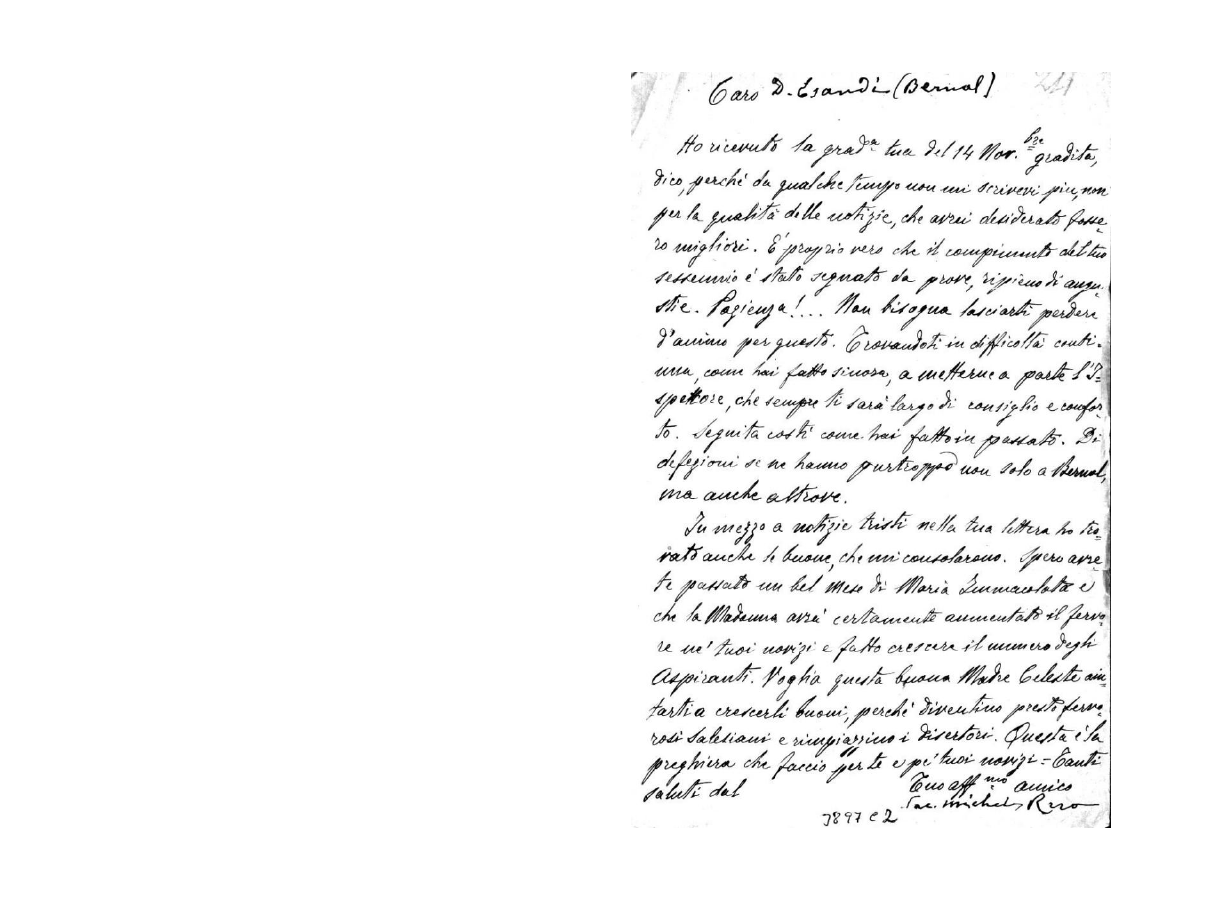 Caro D. Esandi (Bernal)
Ho ricevuto la grad.a tua del 14 Nov.bre gradita,
dico, perché da qualche tempo non mi scrivevi più, non
per la qualità delle notizie, che avrei desiderato fosse=
ro migliori. È proprio vero che il compimento del tuo
sessennio è stato segnato da prove, ripieno di angu=
stie. Pazienza!... Non bisogna lasciarti perdere
d'animo per questo. Trovandoti in difficoltà conti=
nua, come hai fatto sinora, a metterne a parte l'I=
spettore, che sempre ti sarà largo di consiglio e confor=
to. Seguita costì come hai fatto in passato. Di
defezioni se ne hanno purtroppo non solo a Bernal,
ma anche altrove.
In mezzo a notizie tristi nella tua lettera ho tro=
vato anche le buone, che mi consolarono. Spero avre=
te passato un bel mese di Maria Immacolata e
che la Madonna avrà certamente aumentato il fervo=
re ne' tuoi novizi e fatto crescere il numero degli
Aspiranti. Voglia questa buona Madre Celeste aiu=
tarti a crescerli buoni, perché diventino presto fervo=
rosi Salesiani e rimpiazzino i disertori. Questa è la
preghiera che faccio per te e pe' tuoi novizi = Tanti
saluti dal
Tuo aff.mo amico
Sac. Michele Rua
3897 C 2